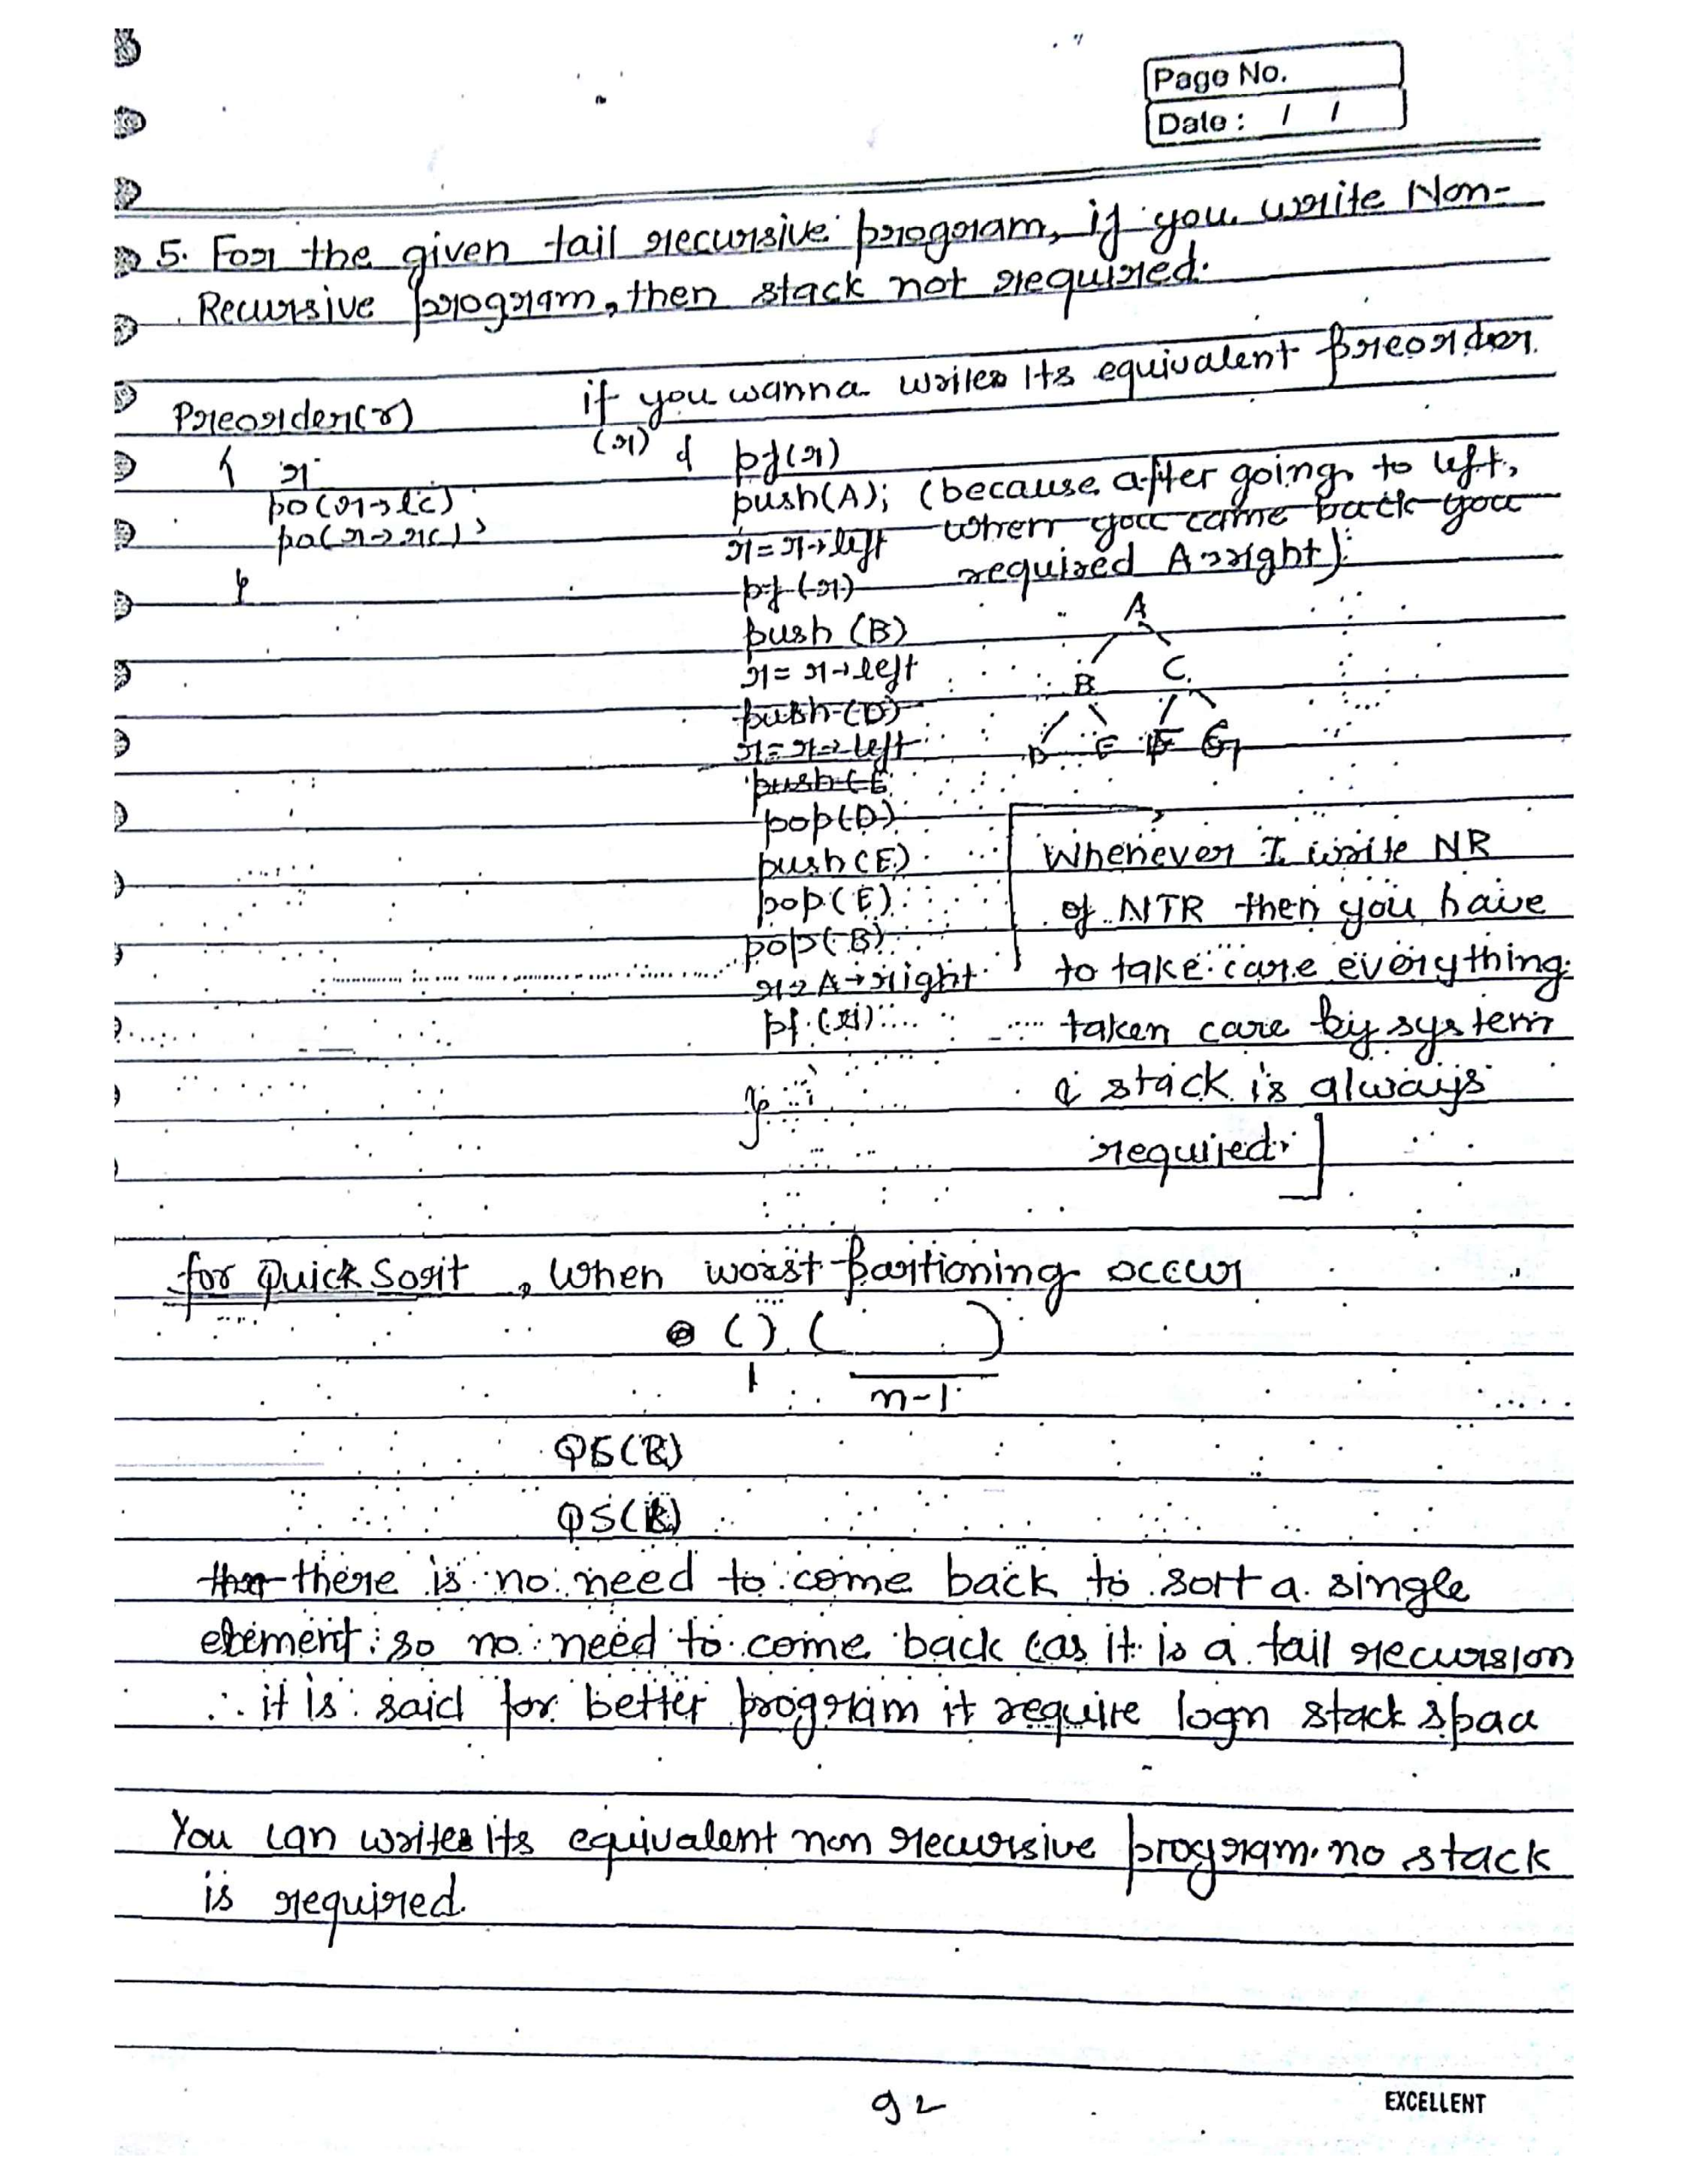 Page No.
Date : / /
5. For the given tail recursive program, if you write Non-
Recursive program, then stack not required.
if you wanna writes its equivalent preorder
Preorder(r)
(r) { pf(r)
{ r
push(A); (because after going to left,
po(r→lc)
when you came back you
po(r→rc);
r=r→left
required A→right).
}
pf(r)
A
push (B)
r= r→left
B C
push(D)
r=r→left
D E F G
push(E
pop(D)
Whenever I write NR
push(E)
of NTR then you have
pop(E)
pop(B)
to take care everything
r=A→right
taken care by system
pf(r)
& stack is always
}
required.
for Quick Sort, when worst partitioning occur
( ) ( )
1 n-1
QS(R)
QS(L)
there is no need to come back to sort a single
element: so no need to come back (as it is a tail recursion
∴ it is said for better program it require logn stack space
You can writes its equivalent non recursive program. no stack
is required.
92
EXCELLENT